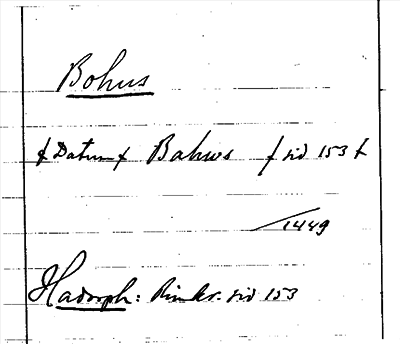 Bohus
⸗Datum⸗ Bahws ⸗ sid 153 ⸗
/1449
Hadorph: Rimkr. sid 153